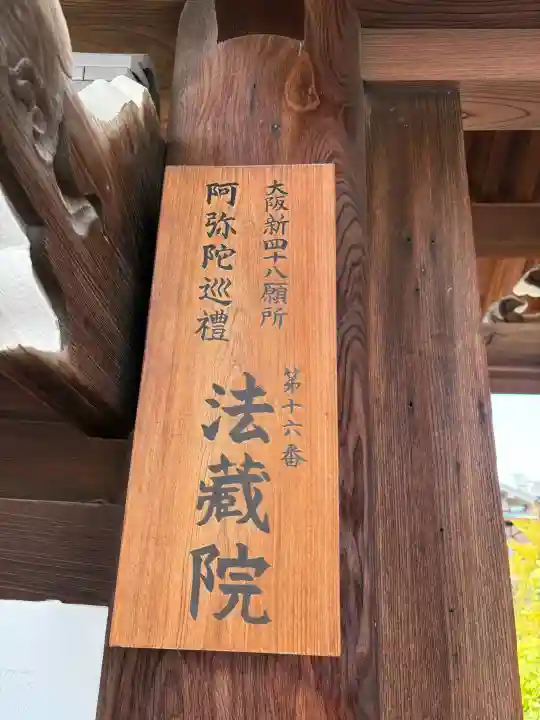 大阪新四十八願所
阿弥陀巡禮
第十六番
法藏院